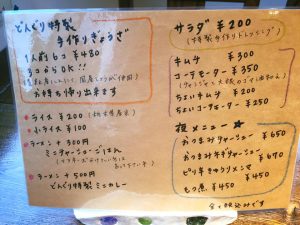 どんぐり特製
手作りぎょうざ
1人前 6コ ¥480
3コからOK!!
お持ち帰り出来ます
・ライス ¥200
小ライス ¥100
・ラーメン + 300円
ミニチャーシューごはん
・ラーメン + 500円
どんぐり特製 ミニカレー
サラダ ¥200
(特製手作りドレッシング)
キムチ ¥300
コーテーモーター ¥350
ちょいキムチ ¥200
ちょいコーテーモーター ¥250
夜メニュー
おつまみチャーシュー ¥650
おつまみネギチャーシュー ¥670
ピリ辛キムラメンマ ¥450
もつ煮 ¥450
全て税込みです